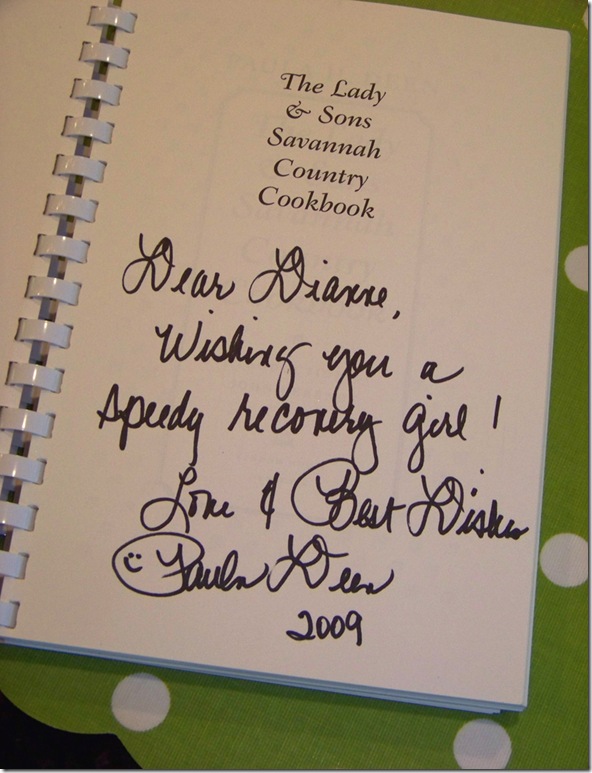 The Lady
& Sons
Savannah
Country
Cookbook
Dear Dianne,
Wishing you a
speedy recovery girl!
Love & Best Dishes
Paula Deen
2009